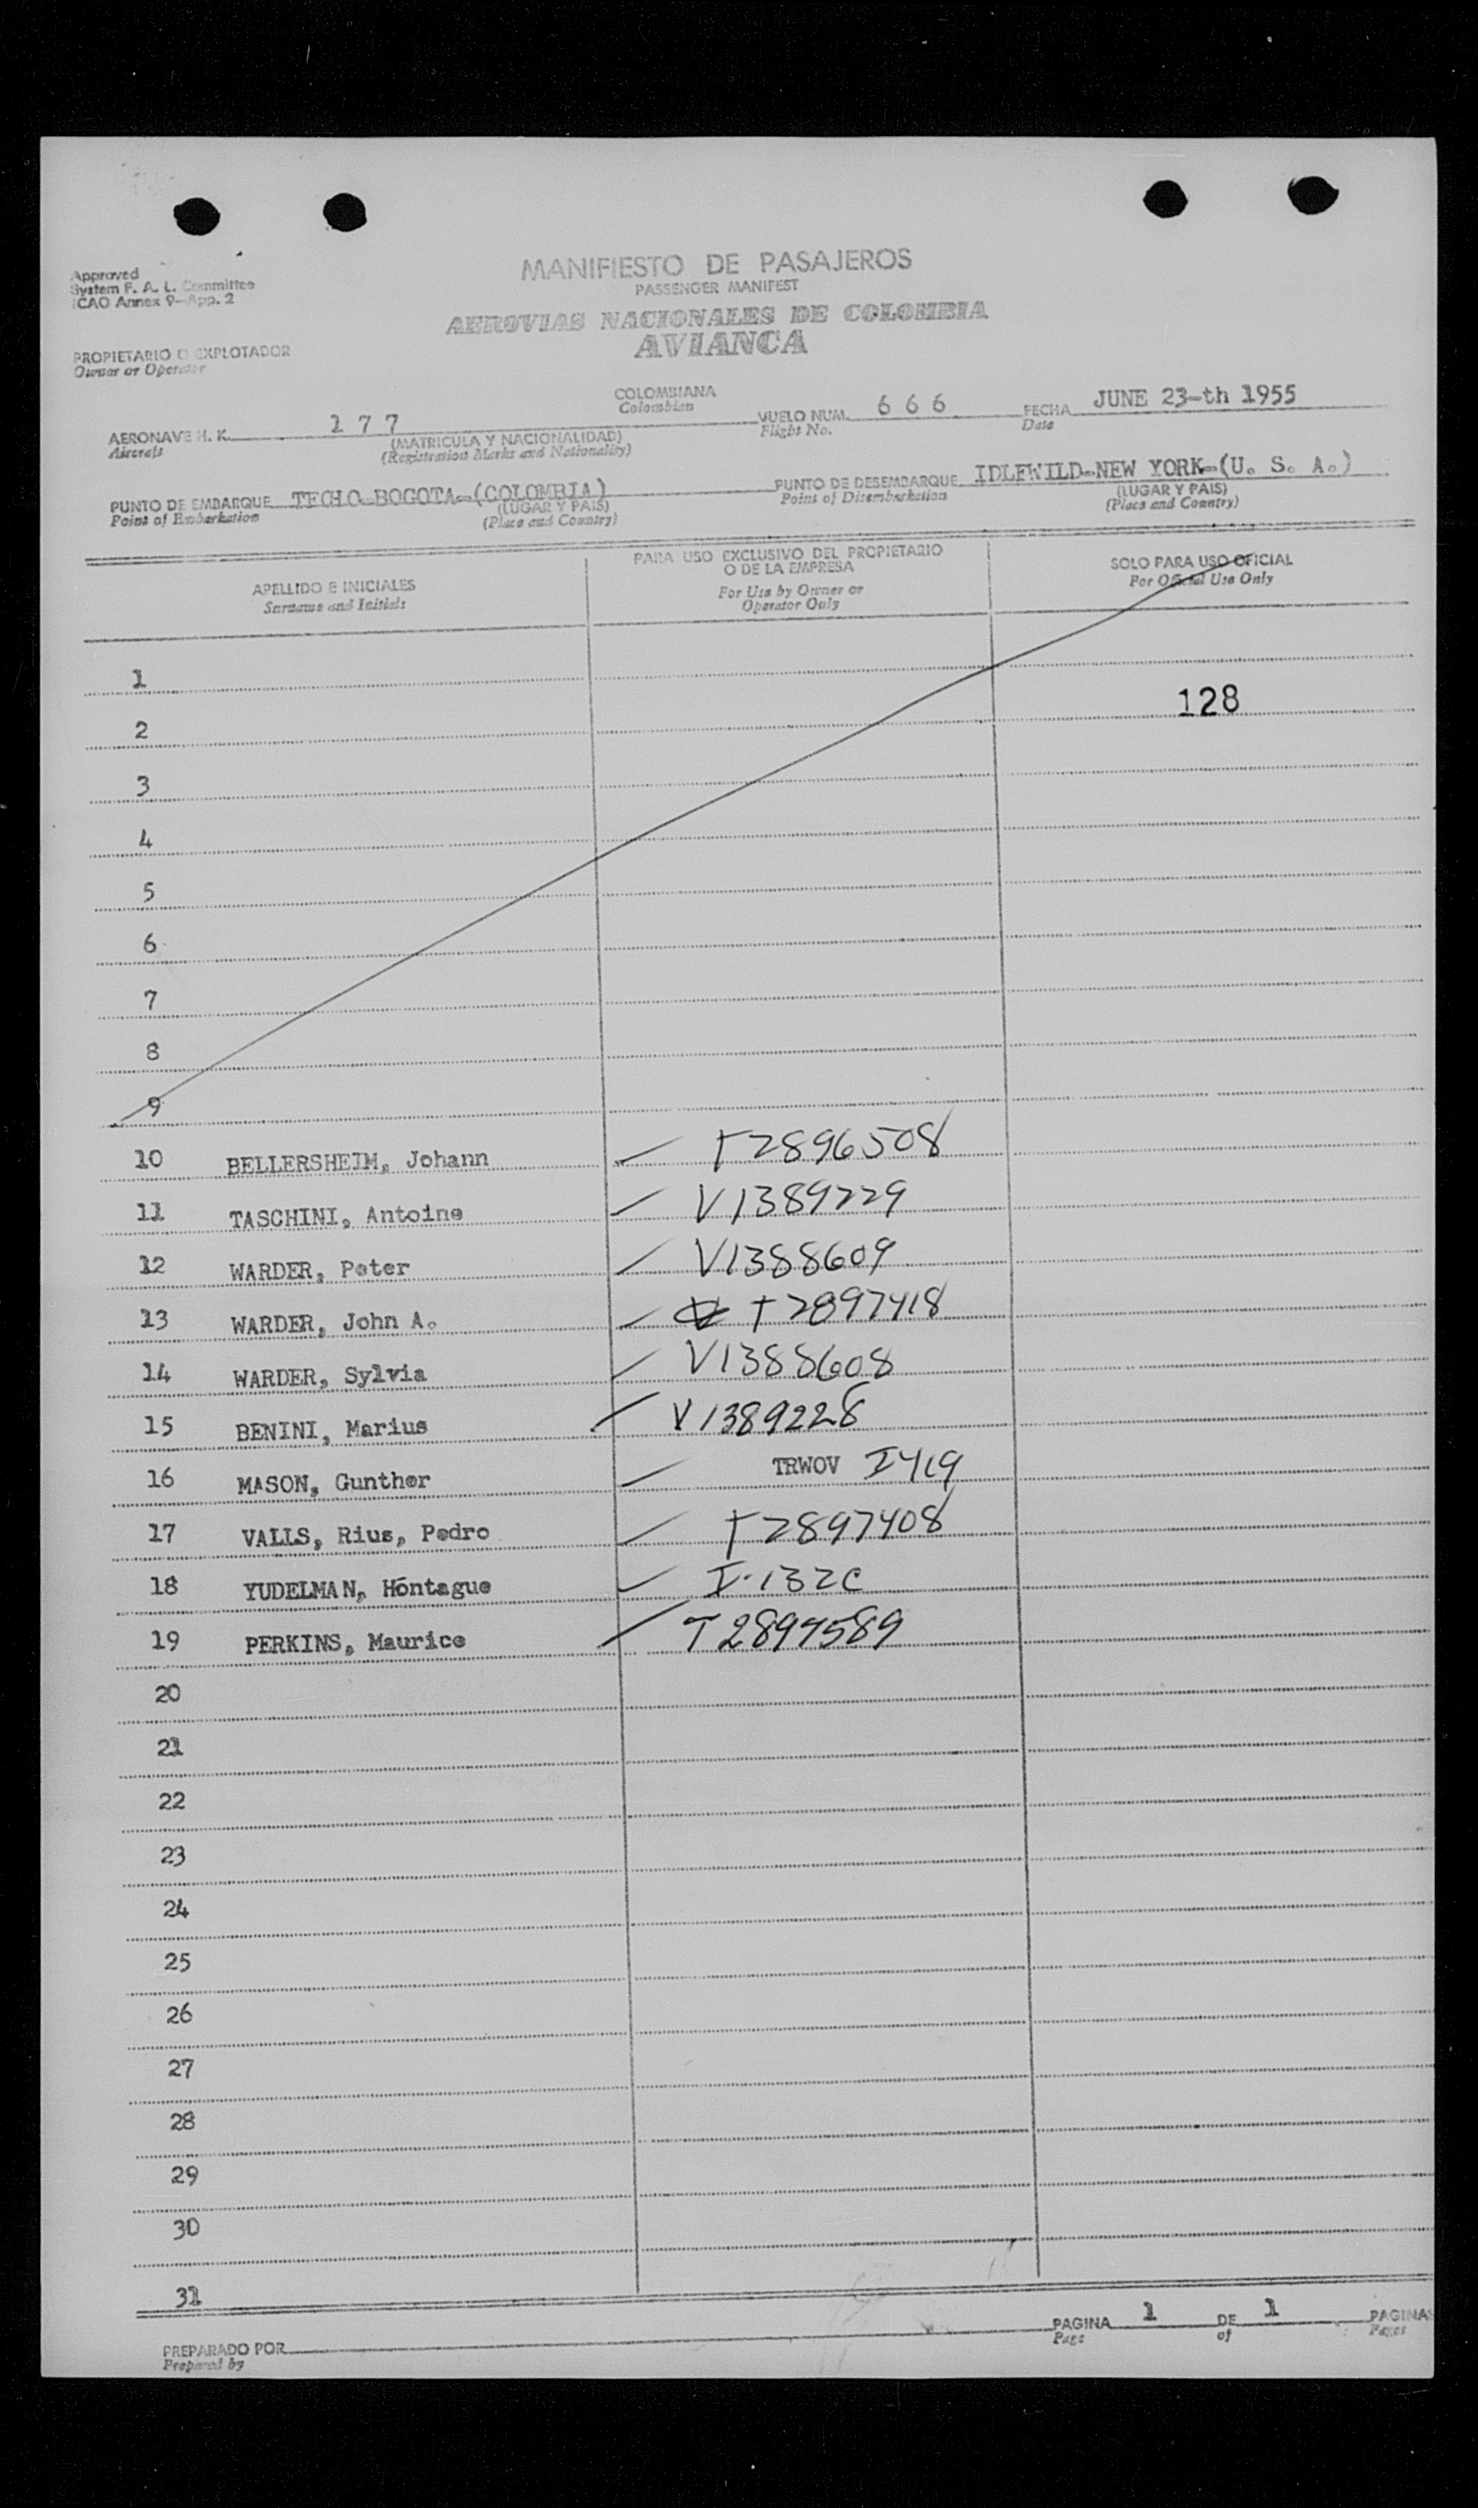 Approved
System F. A. L. Committee
ICAO Annex 9-App. 2
MANIFIESTO DE PASAJEROS
PASSENGER MANIFEST
AEROVIAS NACIONALES DE COLOMBIA
AVIANCA
PROPIETARIO O EXPLOTADOR
Owner or Operator
AERONAVE H. K. 177 COLOMBIANA VUELO NUM. 666 FECHA JUNE 23-th 1955
Aircraft (MATRICULA Y NACIONALIDAD) Colombian Flight No. Date
(Registration Marks and Nationality)
PUNTO DE EMBARQUE TECHO-BOGOTA-(COLOMBIA) PUNTO DE DESEMBARQUE IDLEWILD-NEW YORK-(U. S. A.)
Point of Embarkation (LUGAR Y PAIS) Point of Disembarkation (LUGAR Y PAIS)
(Place and Country) (Place and Country)
APELLIDO E INICIALES PARA USO EXCLUSIVO DEL PROPIETARIO O DE LA EMPRESA SOLO PARA USO OFICIAL
Surname and Initials For Use by Owner or Operator Only For Official Use Only
1
2 128
3
4
5
6
7
8
9
10 BELLERSHEIM, Johann T2896508
11 TASCHINI, Antoine V1389229
12 WARDER, Peter V1388609
13 WARDER, John A. T2897418
14 WARDER, Sylvia V1388608
15 BENINI, Marius V1389228
16 MASON, Gunther TRWOV I419
17 VALLS, Rius, Pedro T2897408
18 YUDELMAN, Hóntague I-132C
19 PERKINS, Maurice T2897589
20
21
22
23
24
25
26
27
28
29
30
31
PREPARADO POR PAGINA 1 DE 1 PAGINAS
Prepared by Page of Pages